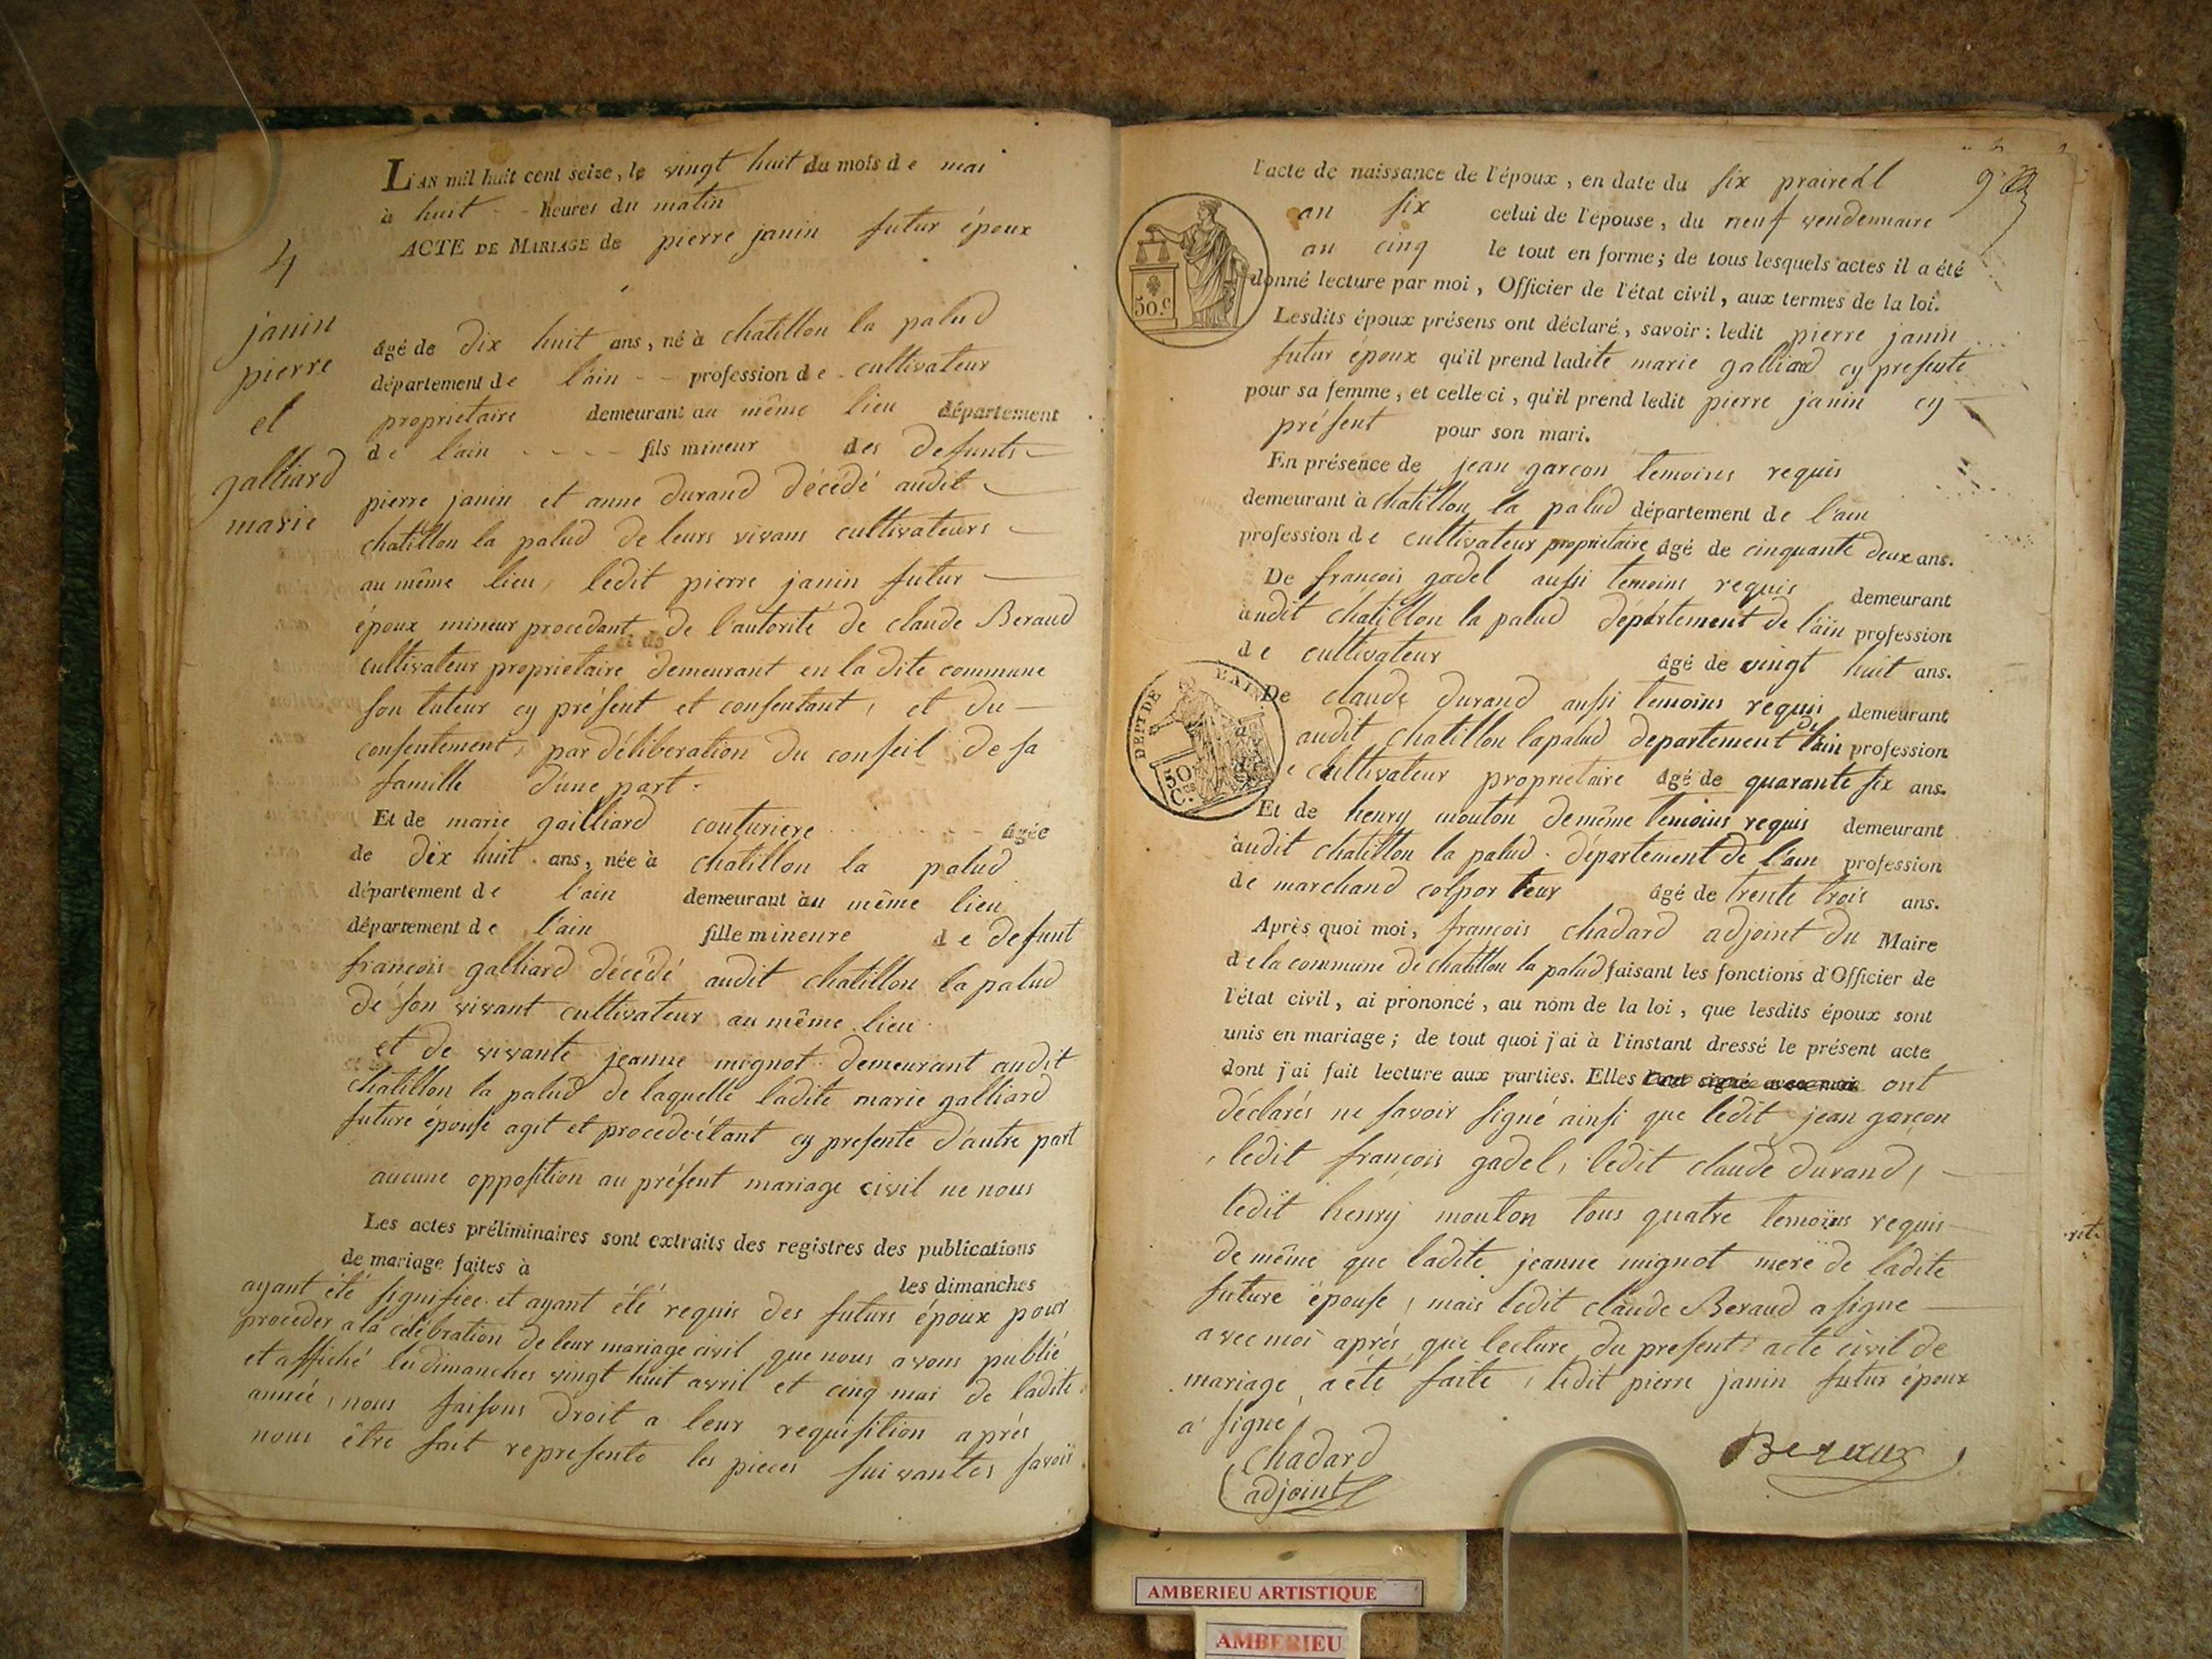 4
janin
pierre
et
galliard
marie
L'AN mil huit cent seize, le vingt huit du mois de mai
à huit - - heures du matin
ACTE DE MARIAGE de pierre janin futur époux
âgé de dix huit ans, né à chatillon la palud
département de l'ain - - profession de - cultivateur
proprietaire demeurant au même lieu département
de l'ain - - - - fils mineur des defunts
pierre janin et anne durand décédé audit
chatillon la palud de leurs vivans cultivateurs
au même lieu, ledit pierre janin futur
époux mineur procedant de l'autorité de claude Beraud
cultivateur proprietaire demeurant en la dite commune
son tuteur cy présent et consentant, et du
consentement, par déliberation du conseil de sa
famille d'une part.
Et de marie gailliard couturiere - - âgée
de dix huit ans, née à chatillon la palud
département de l'ain demeurant au même lieu
département de l'ain fille mineure de defunt
françois galliard décédé audit chatillon la palud
de son vivant cultivateur au même lieu
et de vivante jeanne mignot demeurant audit
chatillon la palud de laquelle ladite marie galliard
future épouse agit et procede étant cy presente d'autre part
aucune opposition au présent mariage civil ne nous
Les actes préliminaires sont extraits des registres des publications
de mariage faites à les dimanches
ayant été signifiee et ayant été requis des futurs époux pour
proceder a la célébration de leur mariage civil que nous avons publié
et affiché les dimanches vingt huit avril et cinq mai de ladite
année, nous faisons droit a leur requisition après
nous être fait represente les pieces suivantes savoir
l'acte de naissance de l'époux, en date du six prairéal
an six celui de l'epouse, du neuf vendemiaire
an cinq le tout en forme; de tous lesquels actes il a été
donné lecture par moi, Officier de l'état civil, aux termes de la loi.
Lesdits époux présens ont déclaré, savoir: ledit pierre janin
futur époux qu'il prend ladite marie galliard cy presente
pour sa femme, et celle ci, qu'il prend ledit pierre janin cy
présent pour son mari.
En présence de jean garcon temoins requis
demeurant à chatillon la palud département de l'ain
profession de cultivateur proprietaire âgé de cinquante deux ans.
De françois gadel aussi temoins requis demeurant
audit chatillon la palud département de l'ain profession
de cultivateur âgé de vingt huit ans.
De claude durand aussi temoins requis demeurant
audit chatillon la palud departement de l'ain profession
de cultivateur proprietaire âgé de quarante six ans.
Et de henry mouton de même temoins requis demeurant
audit chatillon la palud département de l'ain profession
de marchand colporteur âgé de trente trois ans.
Après quoi moi, francois chadard adjoint du Maire
de la commune de chatillon la palud faisant les fonctions d'Officier de
l'état civil, ai prononcé, au nom de la loi, que lesdits époux sont
unis en mariage; de tout quoi j'ai à l'instant dressé le présent acte
dont j'ai fait lecture aux parties. Elles ont signé avec moi ont
déclarés ne savoir signé ainsi que ledit jean garçon
, ledit françois gadel, ledit claude durand,
ledit henry mouton tous quatre temoins requis
de même que ladite jeanne mignot mere de ladite
future épouse, mais ledit claude Beraud a signe
avec moi après que lecture du present acte civil de
mariage a été faite, ledit pierre janin futur époux
a signé
chadard
adjoint
Beraux
50.c
DEPT DE L'AIN
50 C.
AMBERIEU ARTISTIQUE
AMBERIEU